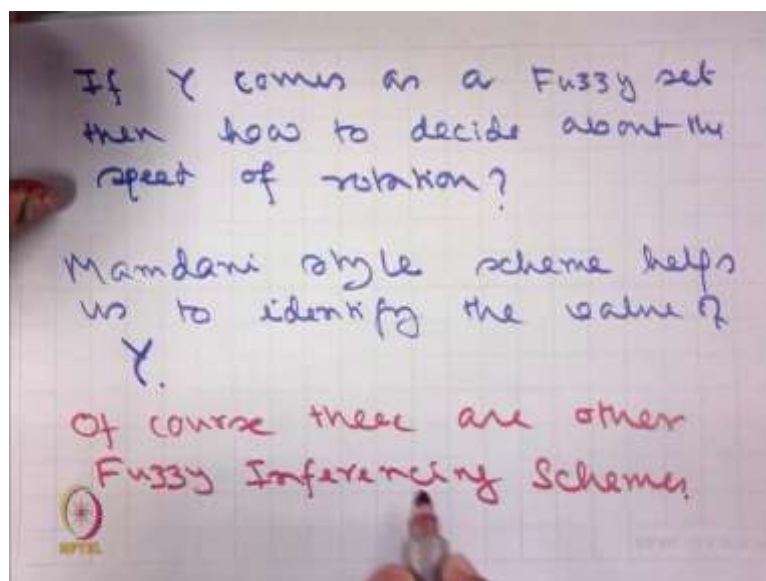 If Y comes as a Fuzzy set
then how to decide about the
speed of rotation?
Mamdani style scheme helps
us to identify the value of
Y.
Of course there are other
Fuzzy Inferencing Schemes.
NPTEL